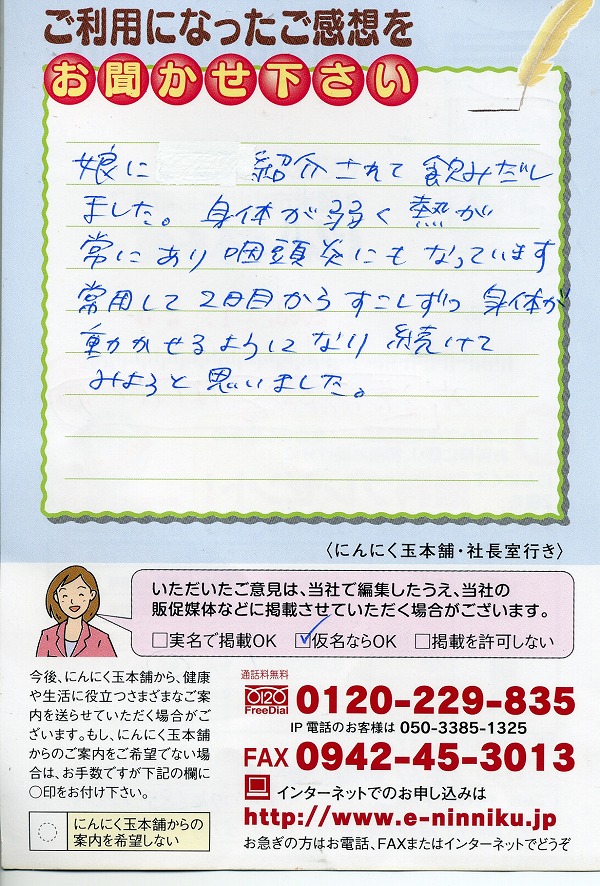 ご利用になったご感想を
お聞かせ下さい
娘に 紹介されて 飲みだし
ました。身体が弱く熱が
常にあり咽頭炎にもなっています
常用して2日目からすこしずつ身体が
動かせるようになり続けて
みようと思いました。
〈にんにく玉本舗・社長室行き〉
いただいたご意見は、当社で編集したうえ、当社の
販促媒体などに掲載させていただく場合がございます。
□実名で掲載OK ☑仮名ならOK □掲載を許可しない
今後、にんにく玉本舗から、健康
や生活に役立つさまざまなご案
内を送らせていただく場合がご
ざいます。もし、にんにく玉本舗
からのご案内をご希望でない場
合は、お手数ですが下記の欄に
○印をお付け下さい。
にんにく玉本舗からの
案内を希望しない
通話料無料
FreeDial 0120-229-835
IP電話のお客様は 050-3385-1325
FAX 0942-45-3013
インターネットでのお申し込みは
http://www.e-ninniku.jp
お急ぎの方はお電話、FAXまたはインターネットでどうぞ